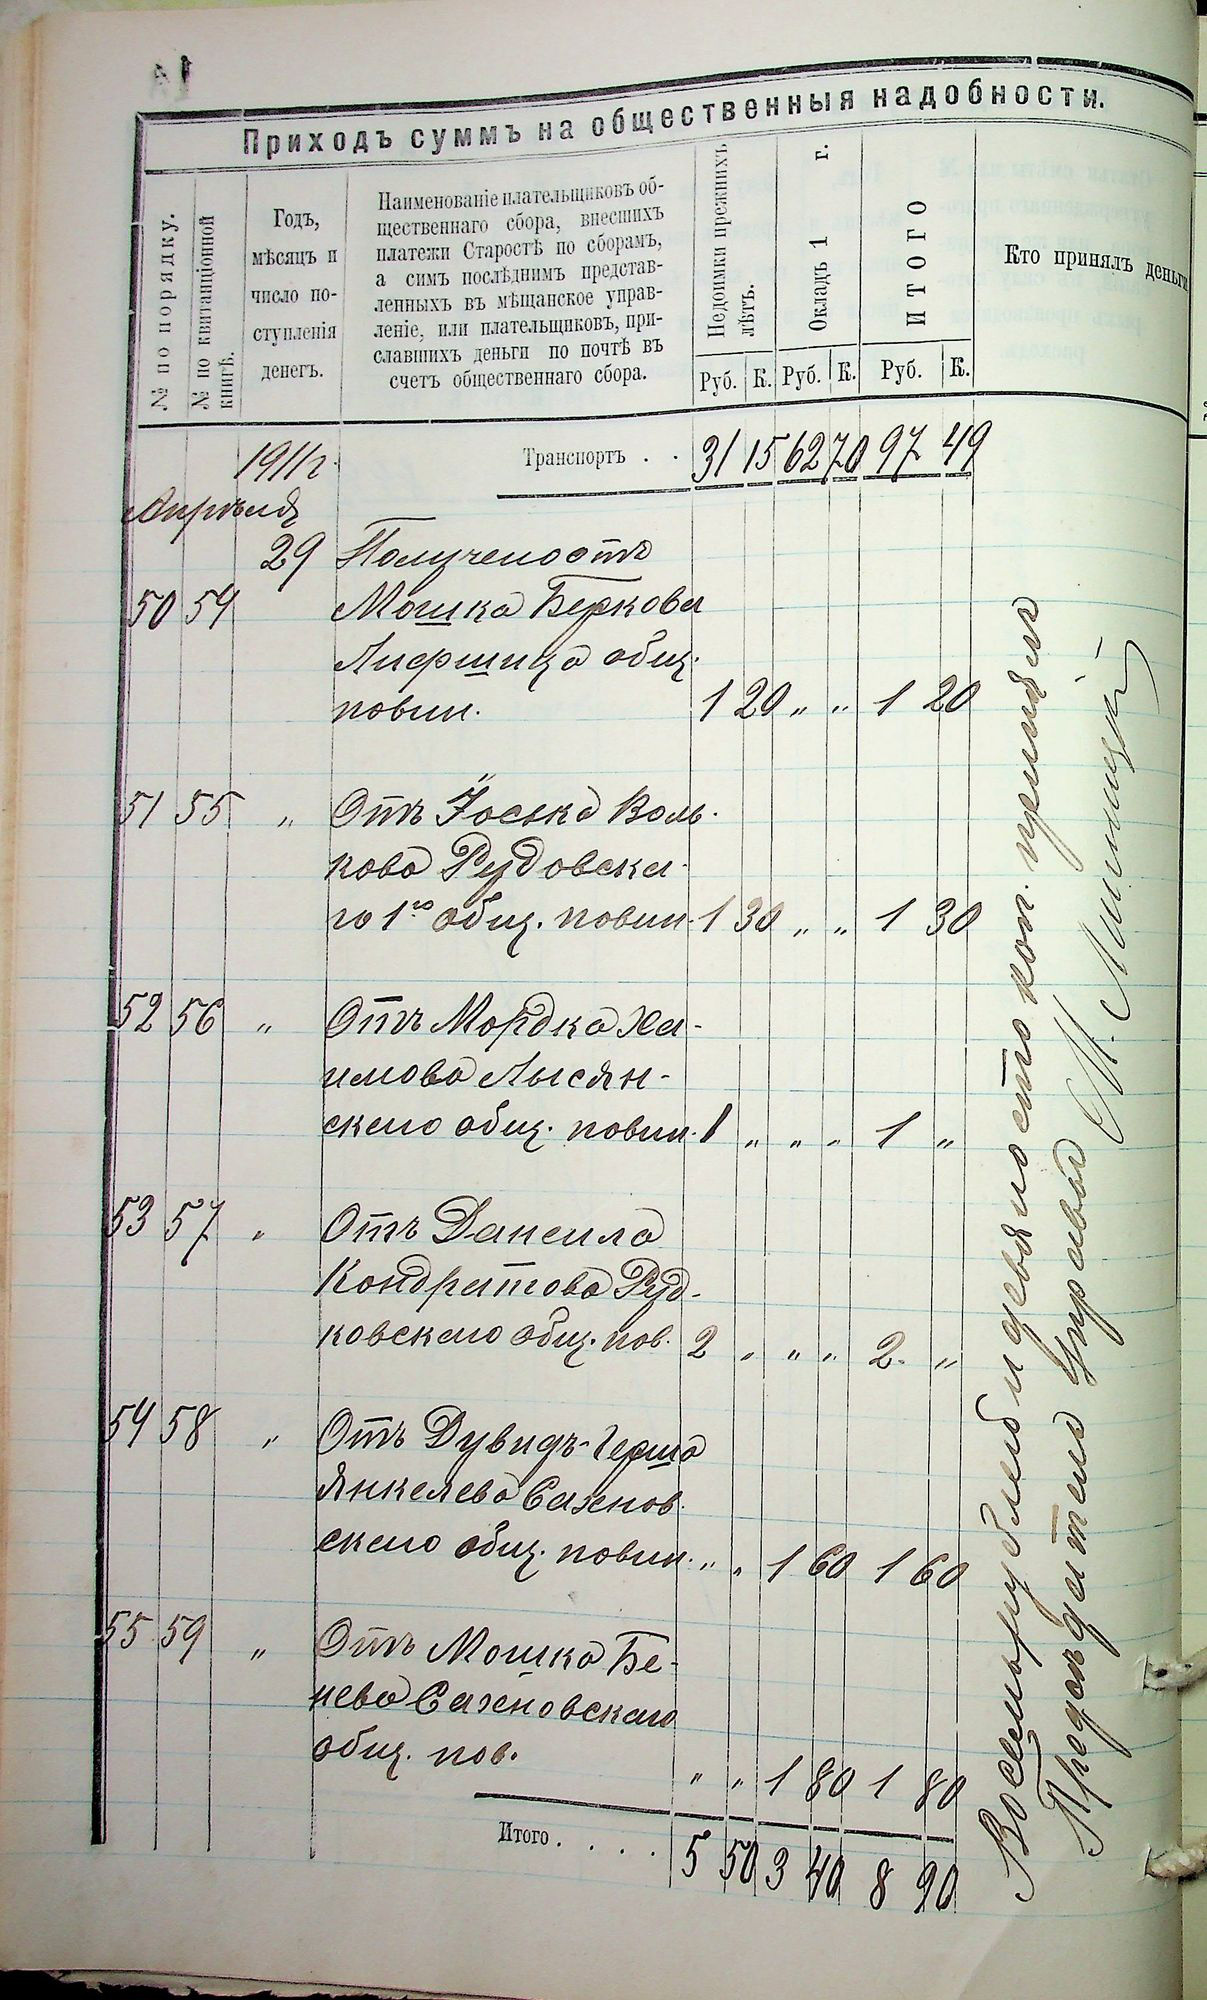 Приходъ суммъ на общественныя надобности.
№ по порядку.
№ по квитанціонной
книгѣ.
Годъ,
мѣсяцъ и
число по-
ступленія
денегъ.
Наименованіе плательщиковъ об-
щественнаго сбора, внесшихъ
платежи Старостѣ по сборамъ,
а симъ послѣднимъ представ-
ленныхъ въ мѣщанское управ-
леніе, или плательщиковъ, при-
славшихъ деньги по почтѣ въ
счетъ общественнаго сбора.
Недоимки прежнихъ
лѣтъ.
Окладъ 1 г.
ИТОГО
Кто принялъ деньги
Руб. К. Руб. К. Руб. К.
1911 г. Транспортъ . . 31 15 62 70 97 49
Апрѣля
29 Получено отъ
50 54 Мошка Беркова
Лифшица общ.
повин. 1 20 „ „ 1 20
51 55 „ Отъ Йоська Воль-
кова Рудовска-
го 1го общ. повин. 1 30 „ „ 1 30
52 56 „ Отъ Мордка Ха-
имова Лысян-
скаго общ. повин. 1 „ „ „ 1 „
53 57 „ Отъ Данеила
Кондратова Руд-
ковскаго общ. пов. 2 „ „ „ 2 „
54 58 „ Отъ Дувидъ-Герша
Янкелева Сахнов-
скаго общ. повин. „ „ 1 60 1 60
55 59 „ Отъ Мошка Бе-
нева Сахновскаго
общ. пов. „ „ 1 80 1 80
Итого . . . . 5 50 3 40 8 90
Восемь рублей и девяносто коп. принялъ
Предсѣдатель Управы М.